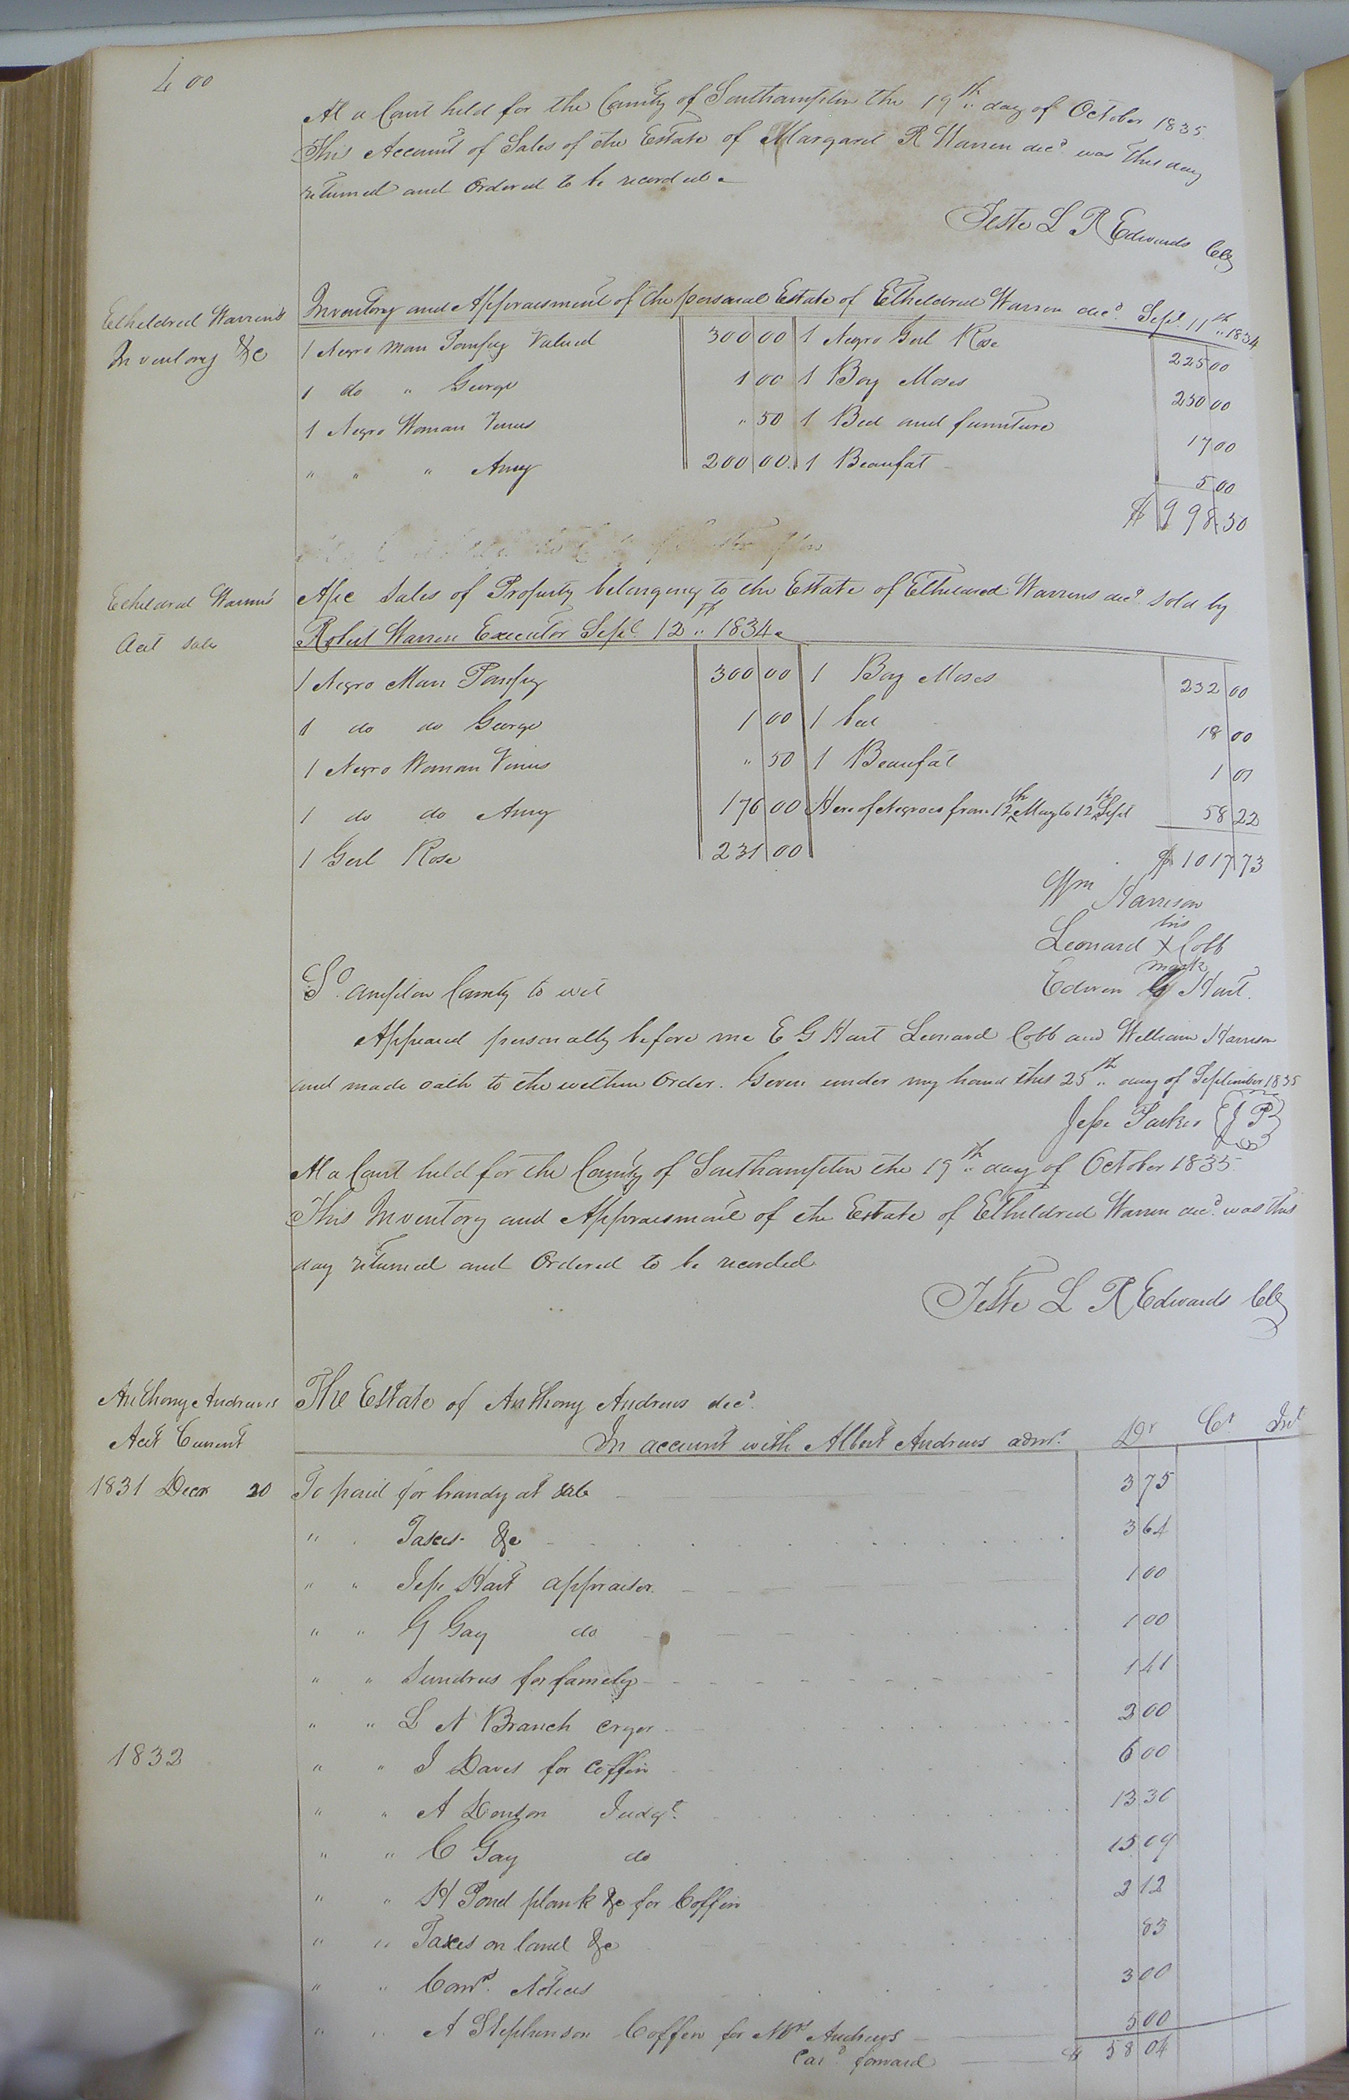 400
At a Court held for the County of Southampton the 19th day of October 1835
This Account of Sales of the Estate of Margaret R Warren decd was this day
returned and Ordered to be recorded
Teste L R Edwards Clk
Etheldred Warren's
Inventory &c
Inventory and Appraisment of the personal Estate of Etheldred Warren decd. Sept. 11th 1834
1 Negro man Pompey Valued 300 00 1 Negro Girl Rose 225 00
1 do " George 1 00 1 Boy Moses 250 00
1 Negro Woman Venus " 50 1 Bed and furniture 17 00
" " " Amy 200 00 1 Beaufat 5 00
$ 998 50
Etheldred Warren's
Act sales
Acc Sales of Property belonging to the Estate of Etheldred Warrens decd. sold by
Robert Warren Executor Sept. 12th 1834
1 Negro Man Pompey 300 00 1 Boy Moses 232 00
1 do do George 1 00 1 bed 18 00
1 Negro Woman Venus " 50 1 Beaufat 1 01
1 do do Amy 176 00 Hire of Negroes from 12th May to 12th Sept 58 22
1 Girl Rose 231 00 $ 1017 73
Wm Harrison
his
Leonard X Cobb
mark
Edwin G Hart.
So. ampton County to wit
Appeared personally before me E G Hart Leonard Cobb and William Harrison
and made oath to the within Order. Given under my hand this 25th day of September 1835
Jesse Parker J P
At a Court held for the County of Southampton the 19th day of October 1835
This Inventory and Appraisment of the Estate of Etheldred Warren decd. was this
day returned and Ordered to be recorded
Teste L R Edwards Clk
Anthony Andrews
Act Current
The Estate of Anthony Andrews decd.
In account with Albert Andrews admr. Dr Cr Int
1831 Decr 20 To paid for brandy at sale 3 75
" " Taxes &c 3 64
" " Jesse Hart appraiser 1 00
" " G Gay do 1 00
" " Sundries for family 1 41
" " L N Branch cryer 2 00
1832 " " J Daves for coffin 6 00
" " A Denson Judgt. 13 30
" " C Gay do 15 09
" " H Pond plank &c for Coffin 2 12
" " Taxes on land &c 83
" " Comrs. Notices 3 00
" " A Stephenson Coffin for Mrs Andrews 5 00
Card. forward $ 58 04